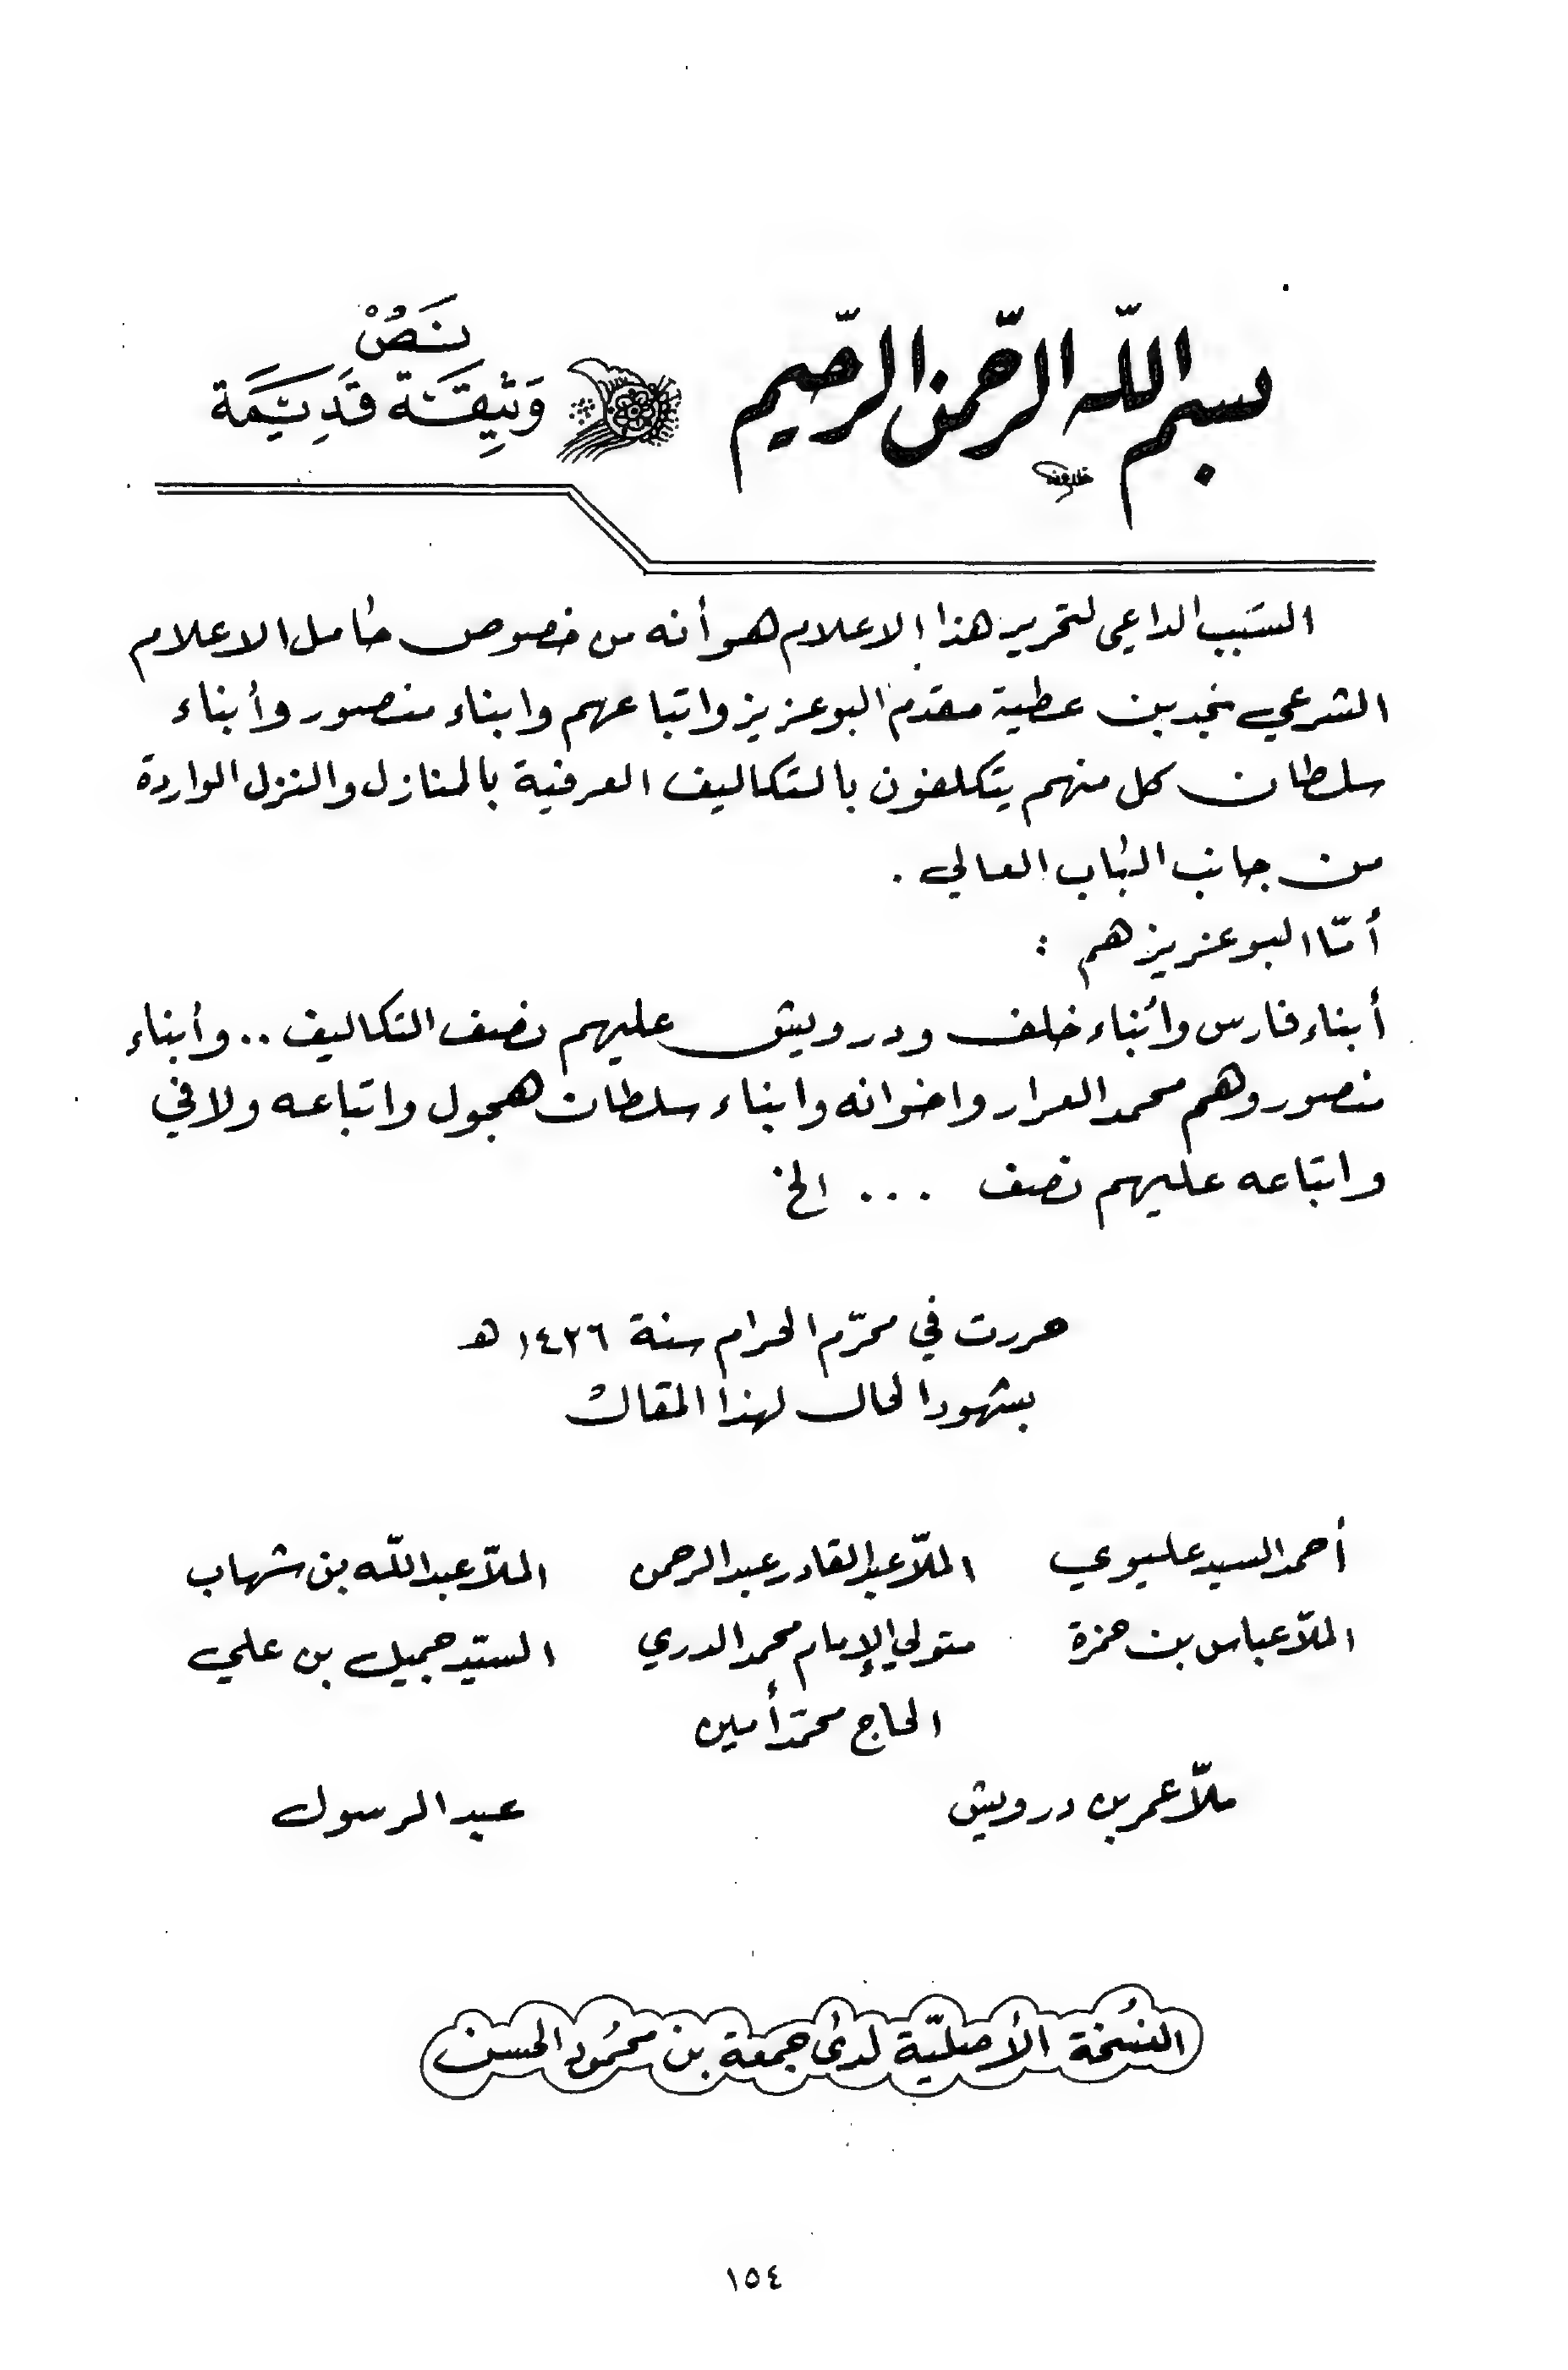 بسم الله الرحمن الرحيم
نَصُّ
وَثِيقَة قَدِيمَة
السَبب الداعي لتحرير هذا الاعلام هو أنه من خصوص حامل الاعلام
الشرعي نجد بن عطية مقدم البوعزيز واتباعهم وابناء منصور وأبناء
سلطان كل منهم يتكلفون بالتكاليف العرفية بالمنازل والنزل الواردة
من جانب الباب العالي .
أمّا البوعزيز هم :
أبناء فارس وأبناء خلف ودرويش عليهم نصف التكاليف .. وأبناء
منصور وهم محمد العرار واخوانه وابناء سلطان هجول واتباعه ولافي
واتباعه عليهم نصف ... الخ
حررت في محرّم الحرام سنة ١٤٢٦ هـ
بشهود الحال لهذا المقال
أحمد السيد عليوي الملّا عبد القادر عبد الرحمن الملّا عبد اللّه بن شهاب
الملّا عباس بن حمزة متولي الإمام محمد الدري السيّد جميل بن علي
الحاج محمّد أمين
ملّا عمر بن درويش عبد الرسول
النسُخة الأصليّة لدى جمعة بن محمُود الحسن
١٥٤